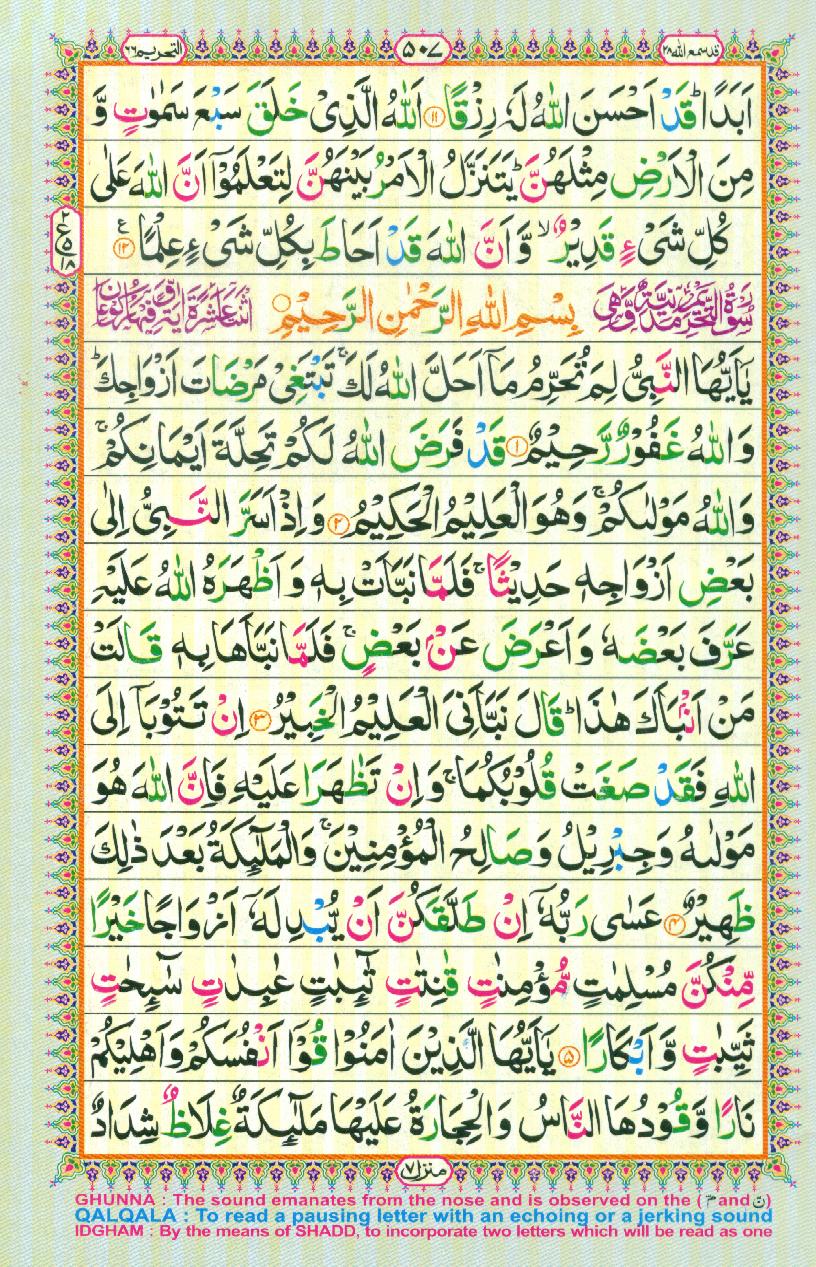 قد سمع الله ٢٨ ٥٠٧ التحريم ٦٦
اَبَدًا ؕ قَدْ اَحْسَنَ اللّٰهُ لَهٗ رِزْقًا ﴿۱۱﴾ اَللّٰهُ الَّذِیْ خَلَقَ سَبْعَ سَمٰوٰتٍ وَّ
مِنَ الْاَرْضِ مِثْلَهُنَّ ؕ یَتَنَزَّلُ الْاَمْرُ بَیْنَهُنَّ لِتَعْلَمُوْۤا اَنَّ اللّٰهَ عَلٰی
كُلِّ شَیْءٍ قَدِیْرٌ ۙ وَّ اَنَّ اللّٰهَ قَدْ اَحَاطَ بِكُلِّ شَیْءٍ عِلْمًا ﴿۱۲﴾
٢ ع ٥ ١٨
بِسْمِ اللّٰهِ الرَّحْمٰنِ الرَّحِیْمِ
یٰۤاَیُّهَا النَّبِیُّ لِمَ تُحَرِّمُ مَاۤ اَحَلَّ اللّٰهُ لَكَ ۚ تَبْتَغِیْ مَرْضَاتَ اَزْوَاجِكَ ؕ
وَ اللّٰهُ غَفُوْرٌ رَّحِیْمٌ ﴿۱﴾ قَدْ فَرَضَ اللّٰهُ لَكُمْ تَحِلَّةَ اَیْمَانِكُمْ ۚ
وَ اللّٰهُ مَوْلٰىكُمْ ۚ وَ هُوَ الْعَلِیْمُ الْحَكِیْمُ ﴿۲﴾ وَ اِذْ اَسَرَّ النَّبِیُّ اِلٰی
بَعْضِ اَزْوَاجِهٖ حَدِیْثًا ۚ فَلَمَّا نَبَّاَتْ بِهٖ وَ اَظْهَرَهُ اللّٰهُ عَلَیْهِ
عَرَّفَ بَعْضَهٗ وَ اَعْرَضَ عَنْۢ بَعْضٍ ۚ فَلَمَّا نَبَّاَهَا بِهٖ قَالَتْ
مَنْ اَنْۢبَاَكَ هٰذَا ؕ قَالَ نَبَّاَنِیَ الْعَلِیْمُ الْخَبِیْرُ ﴿۳﴾ اِنْ تَتُوْبَاۤ اِلَی
اللّٰهِ فَقَدْ صَغَتْ قُلُوْبُكُمَا ۚ وَ اِنْ تَظٰهَرَا عَلَیْهِ فَاِنَّ اللّٰهَ هُوَ
مَوْلٰىهُ وَ جِبْرِیْلُ وَ صَالِحُ الْمُؤْمِنِیْنَ ۚ وَ الْمَلٰٓىِٕكَةُ بَعْدَ ذٰلِكَ
ظَهِیْرٌ ﴿۴﴾ عَسٰی رَبُّهٗۤ اِنْ طَلَّقَكُنَّ اَنْ یُّبْدِلَهٗۤ اَزْوَاجًا خَیْرًا
مِّنْكُنَّ مُسْلِمٰتٍ مُّؤْمِنٰتٍ قٰنِتٰتٍ تٰٓىِٕبٰتٍ عٰبِدٰتٍ سٰٓىِٕحٰتٍ
ثَیِّبٰتٍ وَّ اَبْكَارًا ﴿۵﴾ یٰۤاَیُّهَا الَّذِیْنَ اٰمَنُوْا قُوْۤا اَنْفُسَكُمْ وَ اَهْلِیْكُمْ
نَارًا وَّ قُوْدُهَا النَّاسُ وَ الْحِجَارَةُ عَلَیْهَا مَلٰٓىِٕكَةٌ غِلَاظٌ شِدَادٌ
منزل ٧
GHUNNA : The sound emanates from the nose and is observed on the ( مّ and نّ )
QALQALA : To read a pausing letter with an echoing or a jerking sound
IDGHAM : By the means of SHADD, to incorporate two letters which will be read as one